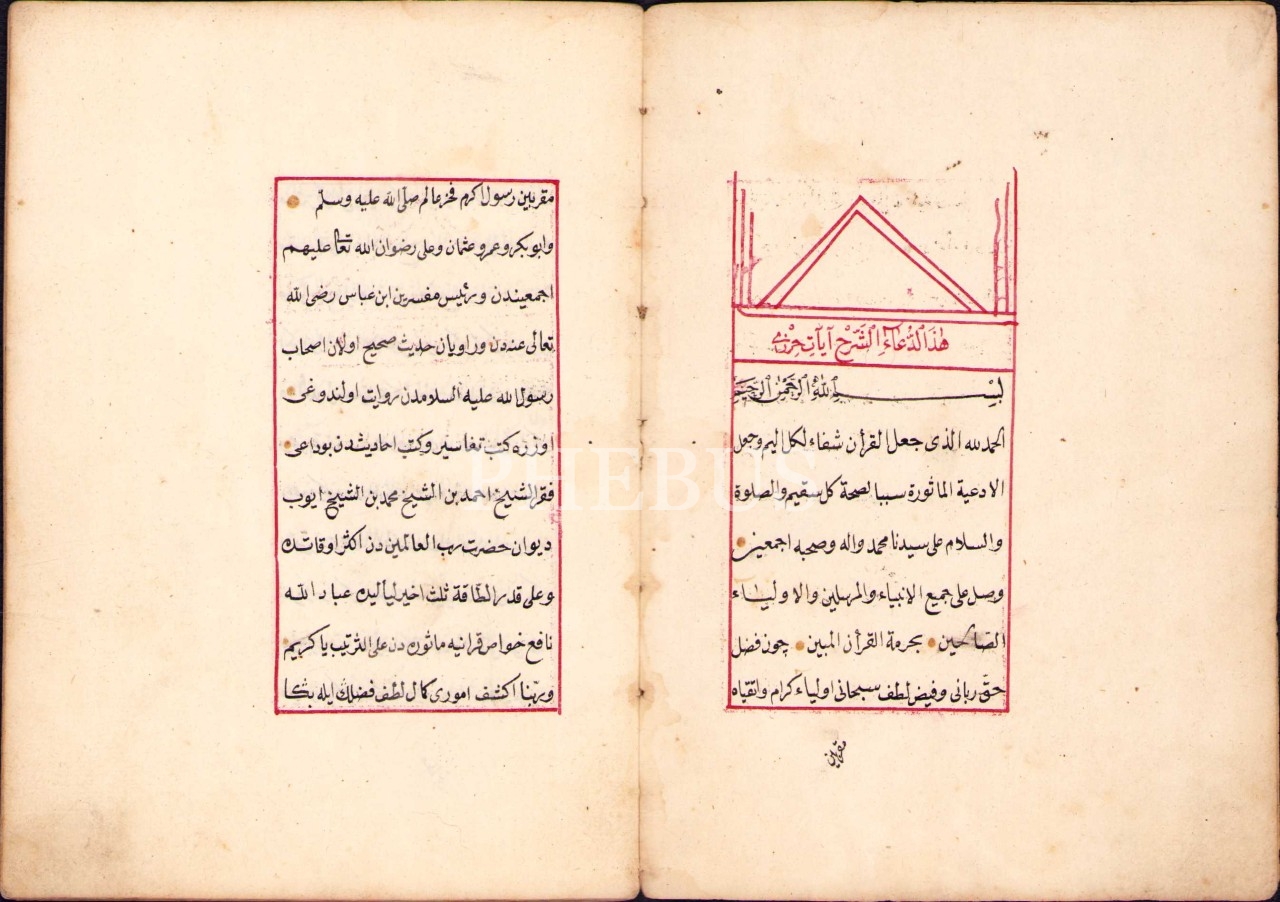 هٰذَا الدُّعَاءُ الشَّرْحِ آيَاتِ حِرْزِى
بسم الله الرحمن الرحيم
الحمد لله الذى جعل القرأن شفاء لكل اليم وجعل
الادعية الماثورة سببا لصحة كل سقيم والصلوة
والسلام على سيدنا محمد واله وصحبه اجمعين
وصل على جميع الانبياء والمرسلين والاولياء
الصالحين بحرمة القرأن المبين چون فضل
حق ربانى وفيض لطف سبحانى اولياء كرام واتقياه
مقربين
مقربين رسول اكرم فخر عالم صلى الله عليه وسلم
وابو بكر وعمر وعثمان وعلى رضوان الله تعالى عليهم
اجمعيندن ورئيس مفسرين ابن عباس رضى الله
تعالى عنه دن وراويان حديث صحيح اولان اصحاب
رسول الله عليه السلامدن روايت اولندوغى
اوزره كتب تفاسير وكتب احاديثدن بوراعى
فقر الشيخ احمد بن الشيخ محمد بن الشيخ ايوب
ديوان حضرت رب العالمين دن اكثر اوقاتده
وعلى قدر الطاقة ثلث اخير لياليده عباد الله
نافع خواص قرانيه ماثوره دن على الترتيب يا كريم
وربنا اكشف امورى كال لطف فضلك ايله بكا
PHEBUS